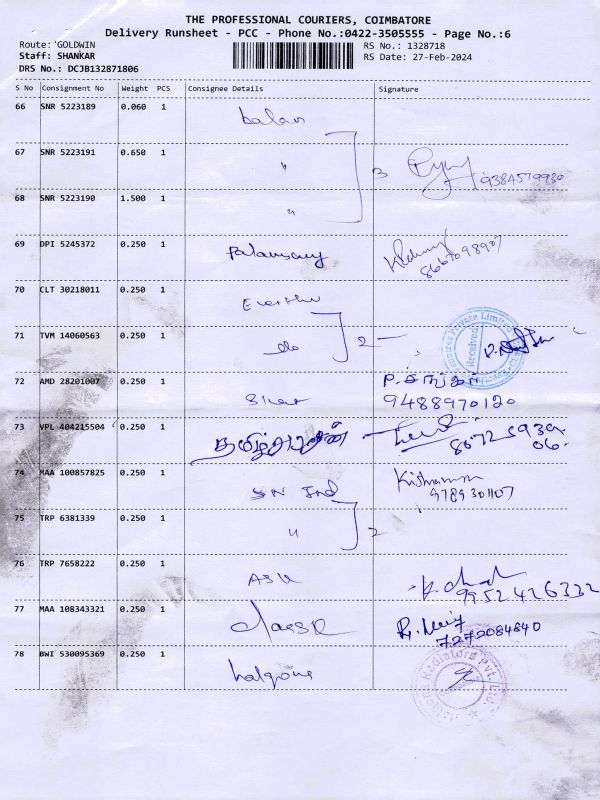 THE PROFESSIONAL COURIERS, COIMBATORE
Delivery Runsheet - PCC - Phone No.:0422-3505555 - Page No.:6
Route: GOLDWIN RS No.: 1328718
Staff: SHANKAR RS Date: 27-Feb-2024
DRS No.: DCJB132871806
S No Consignment No Weight PCS Consignee Details Signature
66 SNR 5223189 0.060 1 balan
67 SNR 5223191 0.650 1 " 3 9384579930
68 SNR 5223190 1.500 1 "
69 DPI 5245372 0.250 1 Palansamy 8667098907
70 CLT 30218011 0.250 1
71 TVM 14060563 0.250 1 do 2 Received
72 AMD 28201007 0.250 1 P. சங்கர்
9488970120
73 VPL 404215504 0.250 1 தமிழ்அரசன்
74 MAA 100857825 0.250 1 SN Ind
9789301107
75 TRP 6381339 0.250 1 " 2
76 TRP 7658222 0.250 1 ASK
9952426332
77 MAA 108343321 0.250 1
7272084840
78 BWI 530095369 0.250 1 Radiators Pvt. Ltd.
Coimbatore